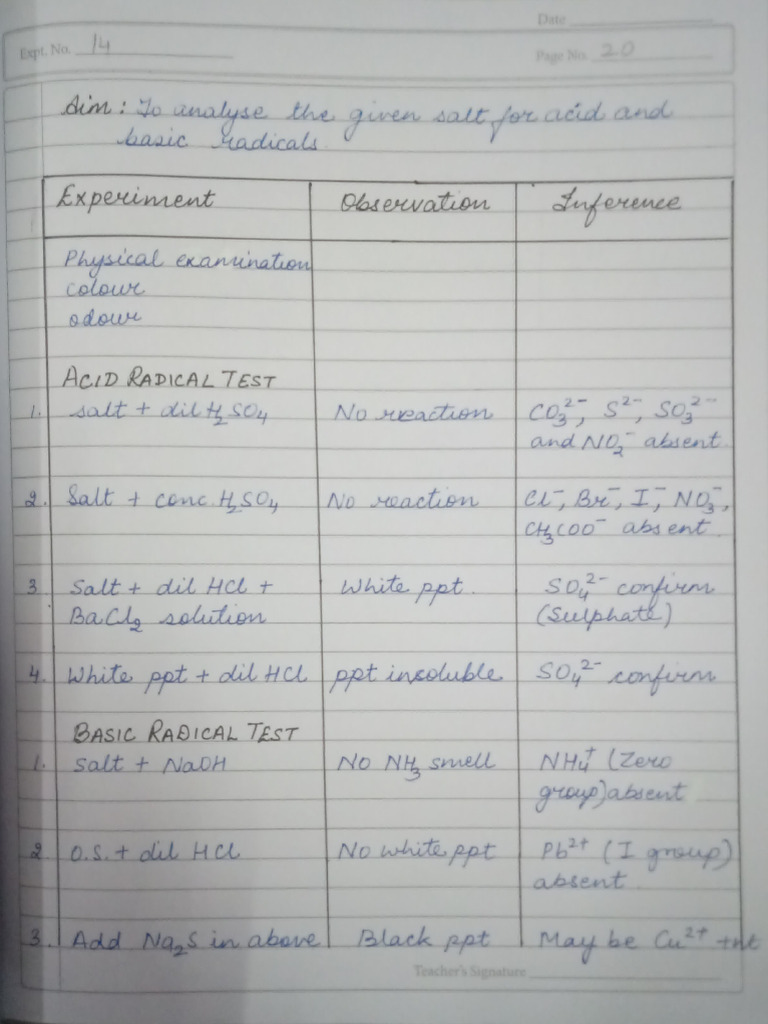 Date
Expt. No. 14
Page No. 20
Aim : To analyse the given salt for acid and
basic radicals
Experiment Observation Inference
Physical examination
colour
odour
ACID RADICAL TEST
1. salt + dil H₂SO₄ No reaction CO₃²⁻, S²⁻, SO₃²⁻
and NO₂⁻ absent
2. Salt + conc. H₂SO₄ No reaction Cl⁻, Br⁻, I⁻, NO₃⁻,
CH₃COO⁻ absent
3 Salt + dil HCl + White ppt. SO₄²⁻ confirm
BaCl₂ solution (Sulphate)
4. White ppt + dil HCl ppt insoluble SO₄²⁻ confirm
BASIC RADICAL TEST
1. Salt + NaOH No NH₃ smell NH₄⁺ (Zero
group) absent
2 O.S. + dil HCl No white ppt Pb²⁺ (I group)
absent
3. Add Na₂S in above Black ppt May be Cu²⁺ +nt
Teacher's Signature